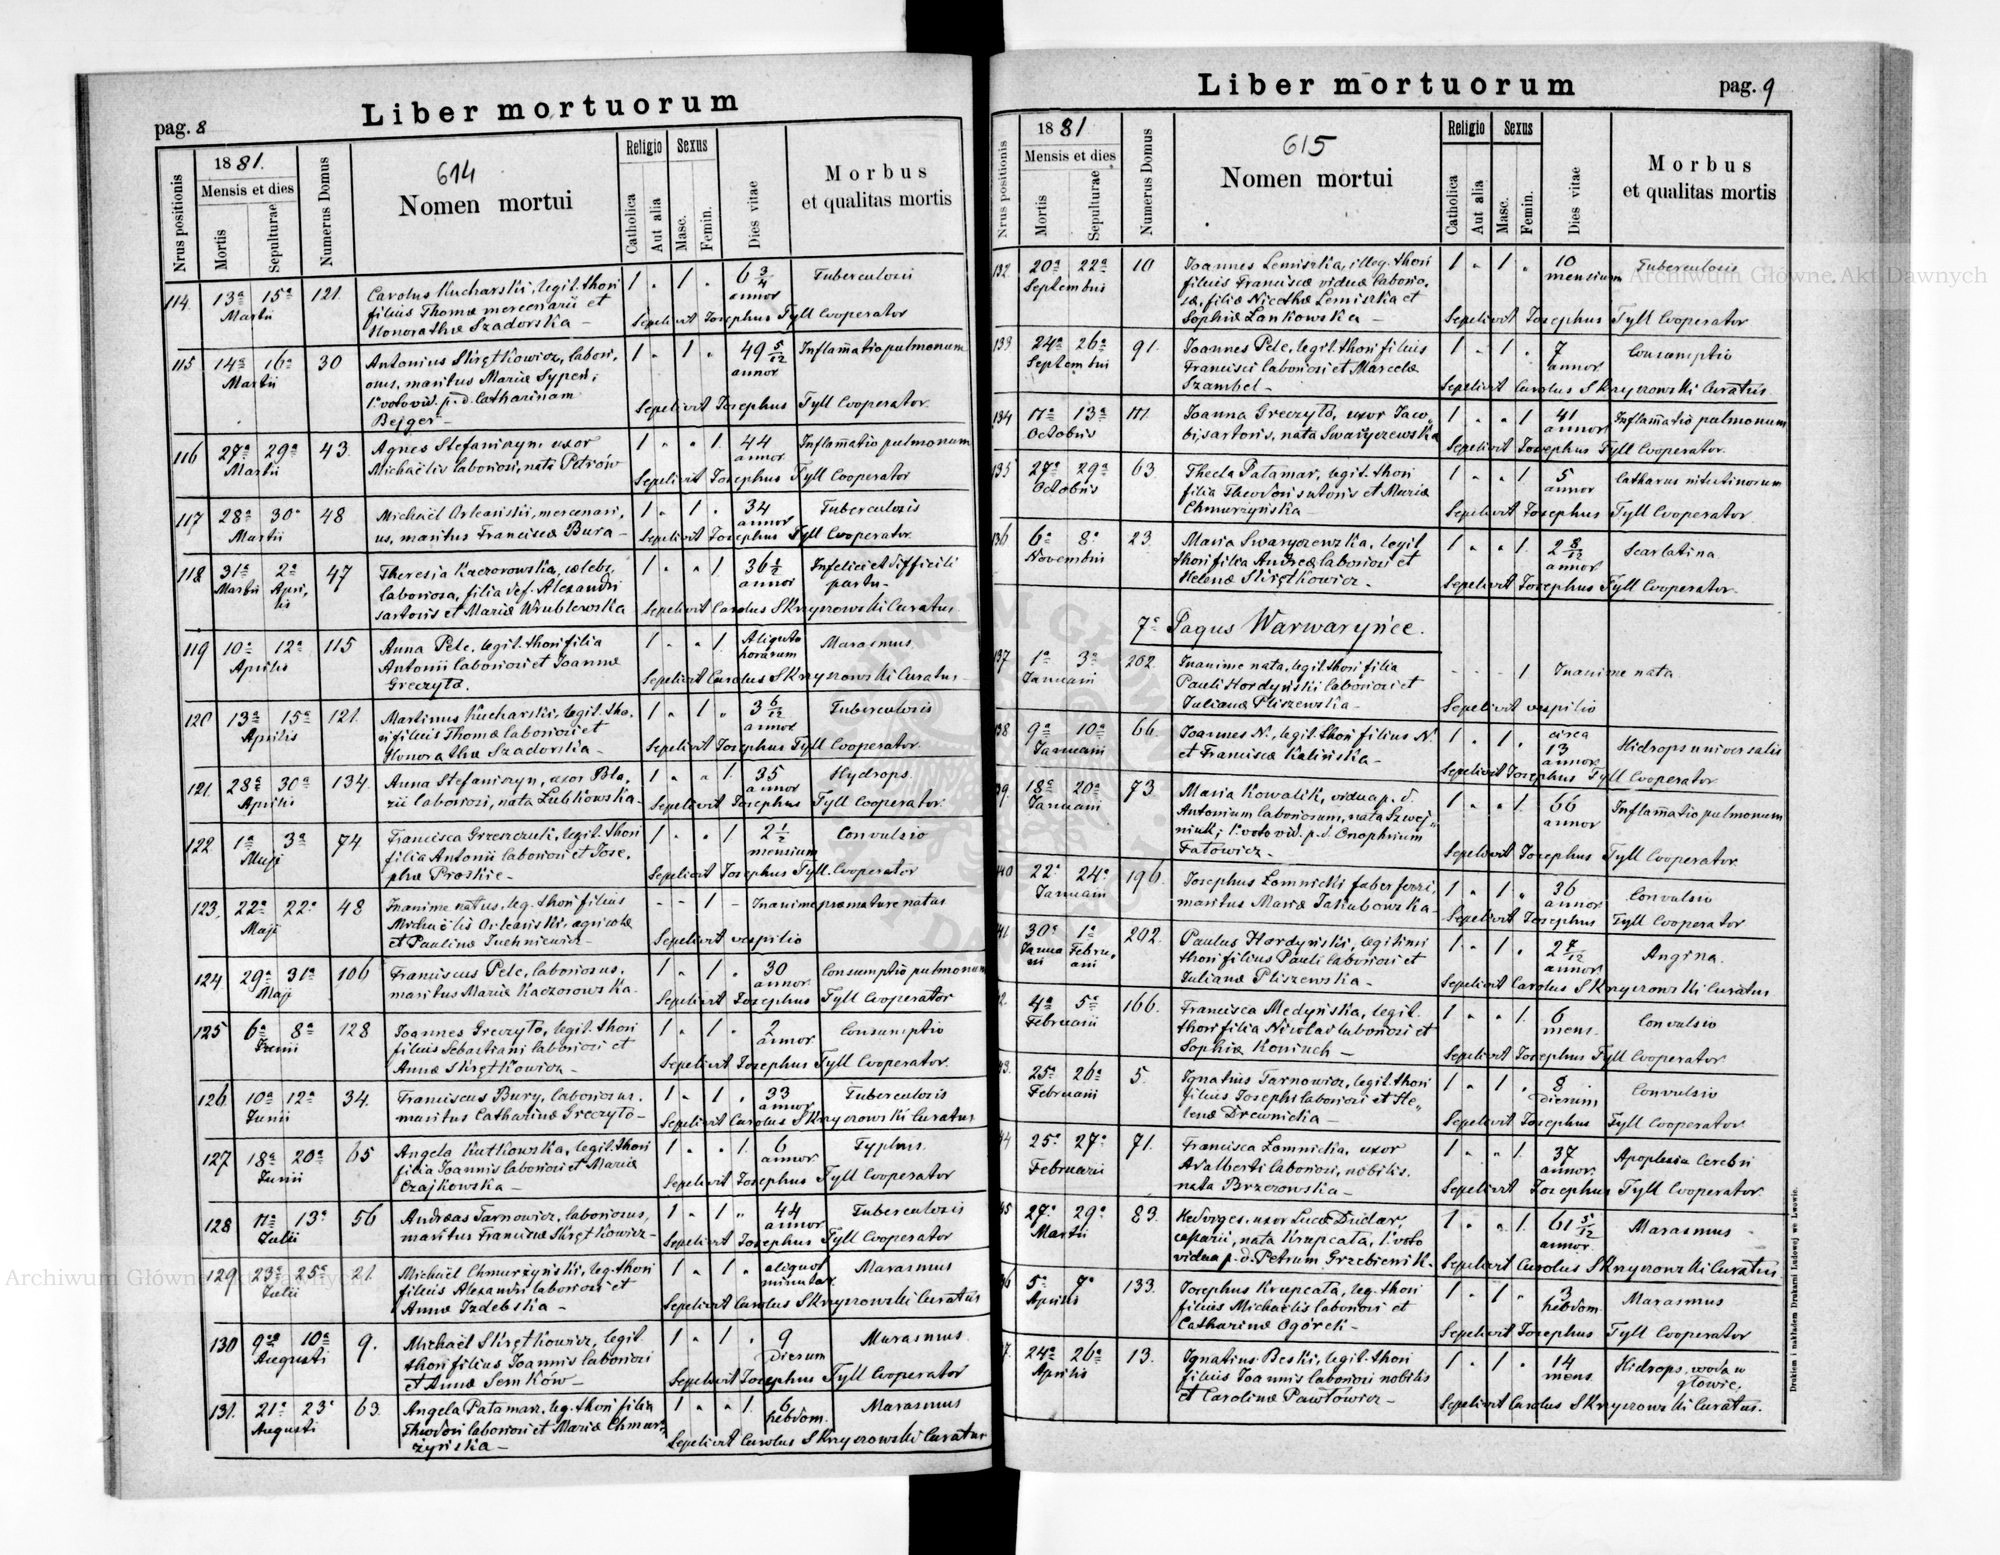 Liber mortuorum
pag. 8
Nrus positionis
1881.
Mensis et dies
Mortis
Sepulturae
Numerus Domus
614
Nomen mortui
Religio
Catholica
Aut alia
Sexus
Masc.
Femin.
Dies vitae
Morbus
et qualitas mortis
114 13a 15a 121. Carolus Kucharski, legit. thori 1 „ 1 „ 6 3/4 Tuberculosis
Martii filius Thomæ mercenarii et annor
Honorathæ Szadorska – Sepelivit Josephus Tyll Cooperator
115 14a 16a 30 Antonius Skrętkowicz, labori, 1 „ 1 „ 49 5/12 Inflam̄atio pulmonum
Martii osus, maritus Mariæ Sypeń; annor
1o voto vid. p. d. Catharinam Sepelivit Josephus Tyll Cooperator.
Bejger –
116 27a 29a 43. Agnes Stefaniszyn, uxor 1 „ „ 1. 44 Inflam̄atio pulmonum
Martii Michaëlis laboriosi, nata Petrów annor
Sepelivit Josephus Tyll Cooperator
117 28a 30a 48 Michaël Orleański, mercenari, 1 „ 1 „ 34 Tuberculosis
Martii us, maritus Franciscæ Bura – annor
Sepelivit Josephus Tyll Cooperator.
118 31a 2a 47 Theresia Kaczorowska, cælebs, 1 „ „ 1 36 1/2 Infelici et difficili
Martii Apri, laboriosa, filia def. Alexandri annor partu –
lis sartoris et Mariæ Wrublewska Sepelivit Carolus Skrzyszowski Curatus
119 10a 12a 115 Anna Pelc, legit. thori filia 1 „ „ 1 Aliquot Marasmus
Aprilis Antonii laboriosi et Joannæ horarum
Greczyło. Sepelivit Carolus Skrzyszowski Curatus –
120 13a 15a 121. Martinus Kucharski, legit. tho, 1 „ 1 „ 3 6/12 Tuberculosis
Aprilis ri filius Thomæ laboriosi et annor
Honorathæ Szadorska – Sepelivit Josephus Tyll Cooperator.
121. 28a 30a 134. Anna Stefaniszyn, uxor Bla, 1 „ „ 1. 35 Hydrops.
Aprilis zii laboriosi, nata Łubkowska – annor
Sepelivit Josephus Tyll Cooperator.
122. 1a 3a 74 Francisca Grzeszczuk, legit. thori 1 „ „ 1 2 1/2 Convulsio
Maji filia Antonii laboriosi et Jose, mensium
phæ Proskie – Sepelivit Josephus Tyll Cooperator
123. 22a 22a 48 Inanime natus, leg. thori filius – – 1 – Inanime præmature natus
Maji Michaëlis Orleański, agricolæ
et Paulinæ Juchniewicz – Sepelivit vespilio
124 29a 31a 106 Franciscus Pelc, laboriosus, 1 „ 1 „ 30 Consumptio pulmonum
Maji maritus Mariæ Kaczorowska. annor.
Sepelivit Josephus Tyll Cooperator
125 6a 8a 128 Joannes Greczyło, legit. thori 1 „ 1 „ 2 Consumptio
Junii filius Sebastiani laboriosi et annor
Annæ Skrętkowicz – Sepelivit Josephus Tyll Cooperator.
126 10a 12a 34. Franciscus Bury, laboriosus, 1 „ 1 „ 33 Tuberculosis
Junii maritus Catharinæ Greczyło – annor
Sepelivit Carolus Skrzyszowski Curatus
127 18a 20a 65 Angela Kutkowska, legit. thori 1 „ „ 1. 6 Typhus.
Junii filia Joannis laboriosi et Mariæ annor.
Czajkowska – Sepelivit Josephus Tyll Cooperator
128 11a 13a 56 Andreas Tarnowicz, laboriosus, 1 „ 1 „ 44 Tuberculosis
Julii maritus Franciscæ Skrętkowicz – annor
Sepelivit Josephus Tyll Cooperator
129 23a 25a 21. Michaël Chmurżyński, leg. thori 1 „ 1 „ aliquot Marasmus
Julii filius Alexandri laboriosi et minutar.
Annæ Izdebska – Sepelivit Carolus Skrzyszowski Curatus
130 9a 10a 9. Michaël Skrętkowicz, legit. 1 „ 1 „ 9 Marasmus.
Augusti thori filius Joannis laboriosi Dierum
et Annæ Semków – Sepelivit Josephus Tyll Cooperator
131. 21a 23a 63. Angela Patamar, leg. thori filia 1 „ „ 1. 6 Marasmus
Augusti Theodori laboriosi et Mariæ Chmur, hebdom.
żyńska – Sepelivit Carolus Skrzyszowski Curatus
Liber mortuorum
pag. 9
Nrus positionis
1881
Mensis et dies
Mortis
Sepulturae
Numerus Domus
615
Nomen mortui
Religio
Catholica
Aut alia
Sexus
Masc.
Femin.
Dies vitae
Morbus
et qualitas mortis
132 20a 22a 10 Joannes Lemiszka, illeg. thori 1 „ 1 „ 10 Tuberculosis
Septembris filius Franciscæ viduæ laborio, mensium
sæ, filiæ Nicethæ Lemiszka et
Sophiæ Łankowska – Sepelivit Josephus Tyll Cooperator
133 24a 26a 91. Joannes Pelc, legit. thori filius 1 „ 1 „ 7 Consumptio
Septembris Francisci laboriosi et Marcelæ annor
Szambel – Sepelivit Carolus Skrzyszowski Curatus
134 11a 13a 111. Joanna Greczyło, uxor Jaco, 1 „ „ 1 41 Inflam̄atio pulmonum
Octobris bi, sartoris, nata Swaryczewska annor
Sepelivit Josephus Tyll Cooperator.
135 27a 29a 63. Thecla Patamar, legit. thori 1 „ „ 1 5 Catharus intestinorum
Octobris filia Theodori sutoris et Mariæ annor
Chmurzyńska – Sepelivit Josephus Tyll Cooperator.
136 6a 8a 23. Maria Swaryczewska, legit 1 „ „ 1. 2 8/12 Scarlatina.
Novembris thori filia Andreæ laboriosi et annor
Helenæ Skrętkowicz – Sepelivit Josephus Tyll Cooperator.
7o Pagus Warwaryńce.
137 1a 3a 202. Inanime nata, legit. thori filia – – – 1 Inanime nata
Januarii Pauli Hordyński laboriosi et
Julianæ Pliszewska – Sepelivit vespilio
138 9a 10a 66. Joannes N., legit. thori filius N. 1 „ 1 „ circa Hidrops universalis
Januarii et Franciscæ Kalińska – 13
annor
Sepelivit Josephus Tyll Cooperator
139. 18a 20a 73. Maria Kowalik, vidua p. d. 1 „ „ 1. 66 Inflam̄atio pulmonum
Januarii Antonium laboriosum, nata Szwej, annor
niuk; 1o voto vid. p. d. Onophrium
Fatowicz – Sepelivit Josephus Tyll Cooperator.
140 22a 24a 196. Josephus Łomnicki faber ferri, 1 „ 1 „ 36 Convulsio
Januarii maritus Mariæ Jakubowska – annor
Sepelivit Josephus Tyll Cooperator
141 30a 1a 202. Paulus Hordyński, legitimi 1 „ 1 „ 2 7/12 Angina.
Janua Febru, thori filius Pauli laboriosi et annor
rii arii Julianæ Pliszewska – Sepelivit Carolus Skrzyszowski Curatus
2. 4a 5a 166. Francisca Medyńska, legit. 1 „ „ 1. 6 Convulsio
Februarii thori filia Nicolai laboriosi et mens.
Sophiæ Koniuch – Sepelivit Josephus Tyll Cooperator.
43. 25a 26a 5. Ignatius Tarnowicz, legit. thori 1 „ 1 „ 8 Convulsio
Februarii filius Josephi laboriosi et He, Dierum
lenæ Drewnicka – Sepelivit Josephus Tyll Cooperator.
44 25a 27a 71. Francisca Łomnicka, uxor 1 „ „ 1. 37 Apoplexia Cerebri
Februarii Adalberti laboriosi, nobilis. annor.
nata Brzozowska – Sepelivit Josephus Tyll Cooperator.
45 27a 29a 83. Hedviges, uxor Lucæ Dudar, 1 „ „ 1. 61 5/12 Marasmus –
Martii caparii, nata Krupcata, 1o voto annor.
vidua p. d. Petrum Grzebienik – Sepelivit Carolus Skrzyszowski Curatus
46 5a 7a 133. Josephus Krupcata, leg. thori 1 „ 1 „ 3 Marasmus
Aprilis filius Michaëlis laboriosi et hebdom.
Catharinæ Ogórek – Sepelivit Josephus Tyll Cooperator
7. 24a 26a 13. Ignatius Beski, legit. thori 1 „ 1 „ 14 Hidrops, woda w
Aprilis filius Joannis laboriosi nobilis mens. głowie,
et Carolinæ Pawłowicz – Sepelivit Carolus Skrzyszowski Curatus.
Drukiem i nakładem Drukarni Ludowej we Lwowie.
Archiwum Główne Akt Dawnych
Archiwum Główne Akt Dawnych